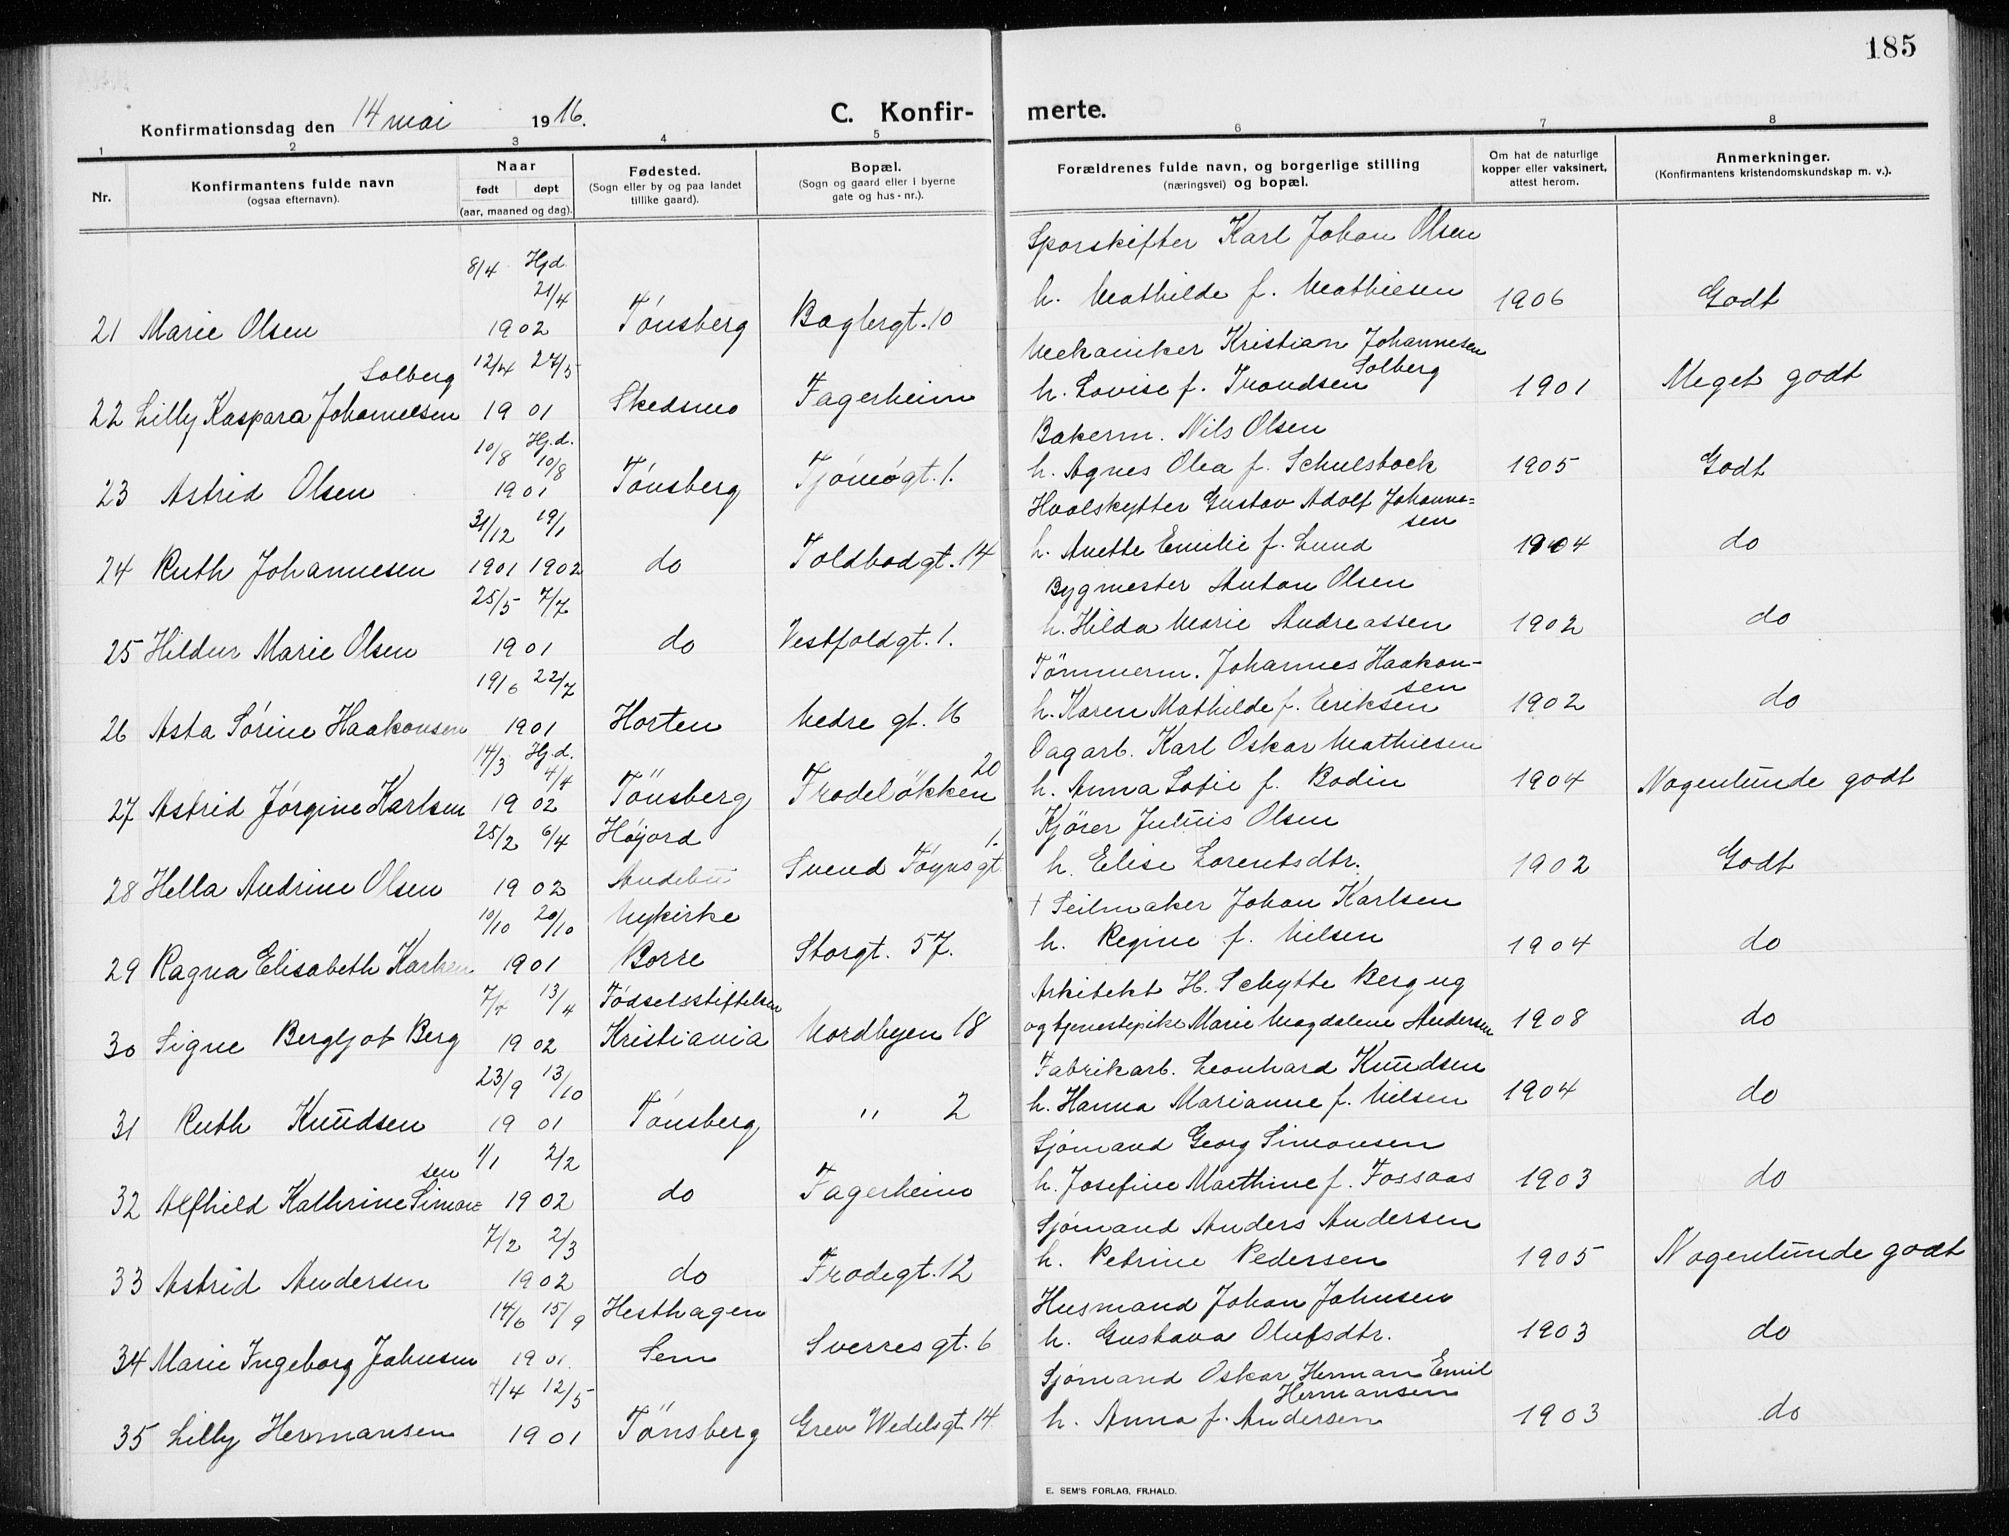 185
Konfirmationsdag den 14 mai 1916.
C. Konfirmerte.
1 2 3 4 5 6 7 8
Nr.
Konfirmantens fulde navn
(ogsaa efternavn).
Naar
født døpt
(aar, maaned og dag).
Fødested.
(Sogn eller by og paa landet
tillike gaard).
Bopæl.
(Sogn og gaard eller i byerne
gate og hus-nr.).
Forældrenes fulde navn, og borgerlige stilling
(næringsvei) og bopæl.
Om hat de naturlige
kopper eller vaksinert,
attest herom.
Anmerkninger.
(Konfirmantens kristendomskundskap m. v.).
8/4 Hj.d. 21/4 Sporskifter Karl Johan Olsen
21 Marie Olsen 1902 Tønsberg Baglergt. 10 h. Mathilde f. Mathiesen 1906 Godt
Solberg 12/4 27/5 Mekaniker Kristian Johannesen Solberg
22 Lilly Kaspara Johannesen 1901 Skedsmo Fagerheim h. Lovise f. Trondsen 1901 Meget godt
10/8 Hj.d. 10/8 Bakerm. Nils Olsen
23 Astrid Olsen 1901 Tønsberg Tjømøgt. 1. h. Agnes Olea f. Schulstock 1905 Godt
31/12 19/1 Hvalskytter Gustav Adolf Johanne=
sen
24 Ruth Johannesen 1901 1902 do Toldbodgt. 14 h. Anette Emilie f. Lund 1904 do
25/5 7/7 Bygmester Anton Olsen
25 Hildur Marie Olsen 1901 do Vestfoldgt. 1. h. Hilda Marie Andreassen 1902 do
19/6 22/7 Tömmerm. Johannes Haakon-
sen
26 Asta Sørine Haakonsen 1901 Horten Nedre gt. 16 h. Karen Mathilde f. Eriksen 1902 do
14/3 Hj.d. 4/4 Dagarb. Karl Oskar Mathiesen
27 Astrid Jørgine Karlsen 1902 Tönsberg Frodeløkken 20 h. Anna Sofie f. Bodin 1904 Nogenlunde godt
25/2 6/4 Højord Kjører Julius Olsen
28 Hella Andrine Olsen 1902 Andebu Svend Foynsgt 1. h. Elise Lorentsdtr. 1902 Godt
10/10 20/10 Nykirke † Seilmaker Johan Karlsen
29 Ragna Elisabeth Karlsen 1901 Borre Storgt. 57. h. Regine f. Nilsen 1904 do
13/4 Fødselsstiftelsen Arkitekt H. Schytte Berg ug
30 Signe Bergljot Berg 1902 Kristiania Nordbyen 18 og tjenestepike Marie Magdalene Andersen 1908 do
23/9 13/10 Fabrikarb. Leonhard Knudsen
31 Ruth Knudsen 1901 Tønsberg " 2 h. Hanna Marianne f. Nilsen 1904 do
1/1 2/2 Sjømand Georg Simonsen
sen
32 Alfhild Kathrine Simon= 1902 do Fagerheim h. Josefine Marthine f. Fossaas 1903 do
7/2 2/3 Sjømand Anders Andersen
33 Astrid Andersen 1902 do Frodegt. 12 h. Petrine Pedersen 1905 Nogenlunde godt
14/6 15/9 Hesthagen Husmand Johan Johnsen
34 Marie Ingeborg Johnsen 1901 Sem Sverresgt. 6 h. Gustava Olufsdtr. 1903 do
4/4 12/5 Sjømand Oskar Herman Emil
Hermansen
35 Lilly Hermansen 1901 Tönsberg Grev Wedelsgt. 14 h. Anna f. Andersen 1903 do
E. SEM'S FORLAG, FR.HALD.